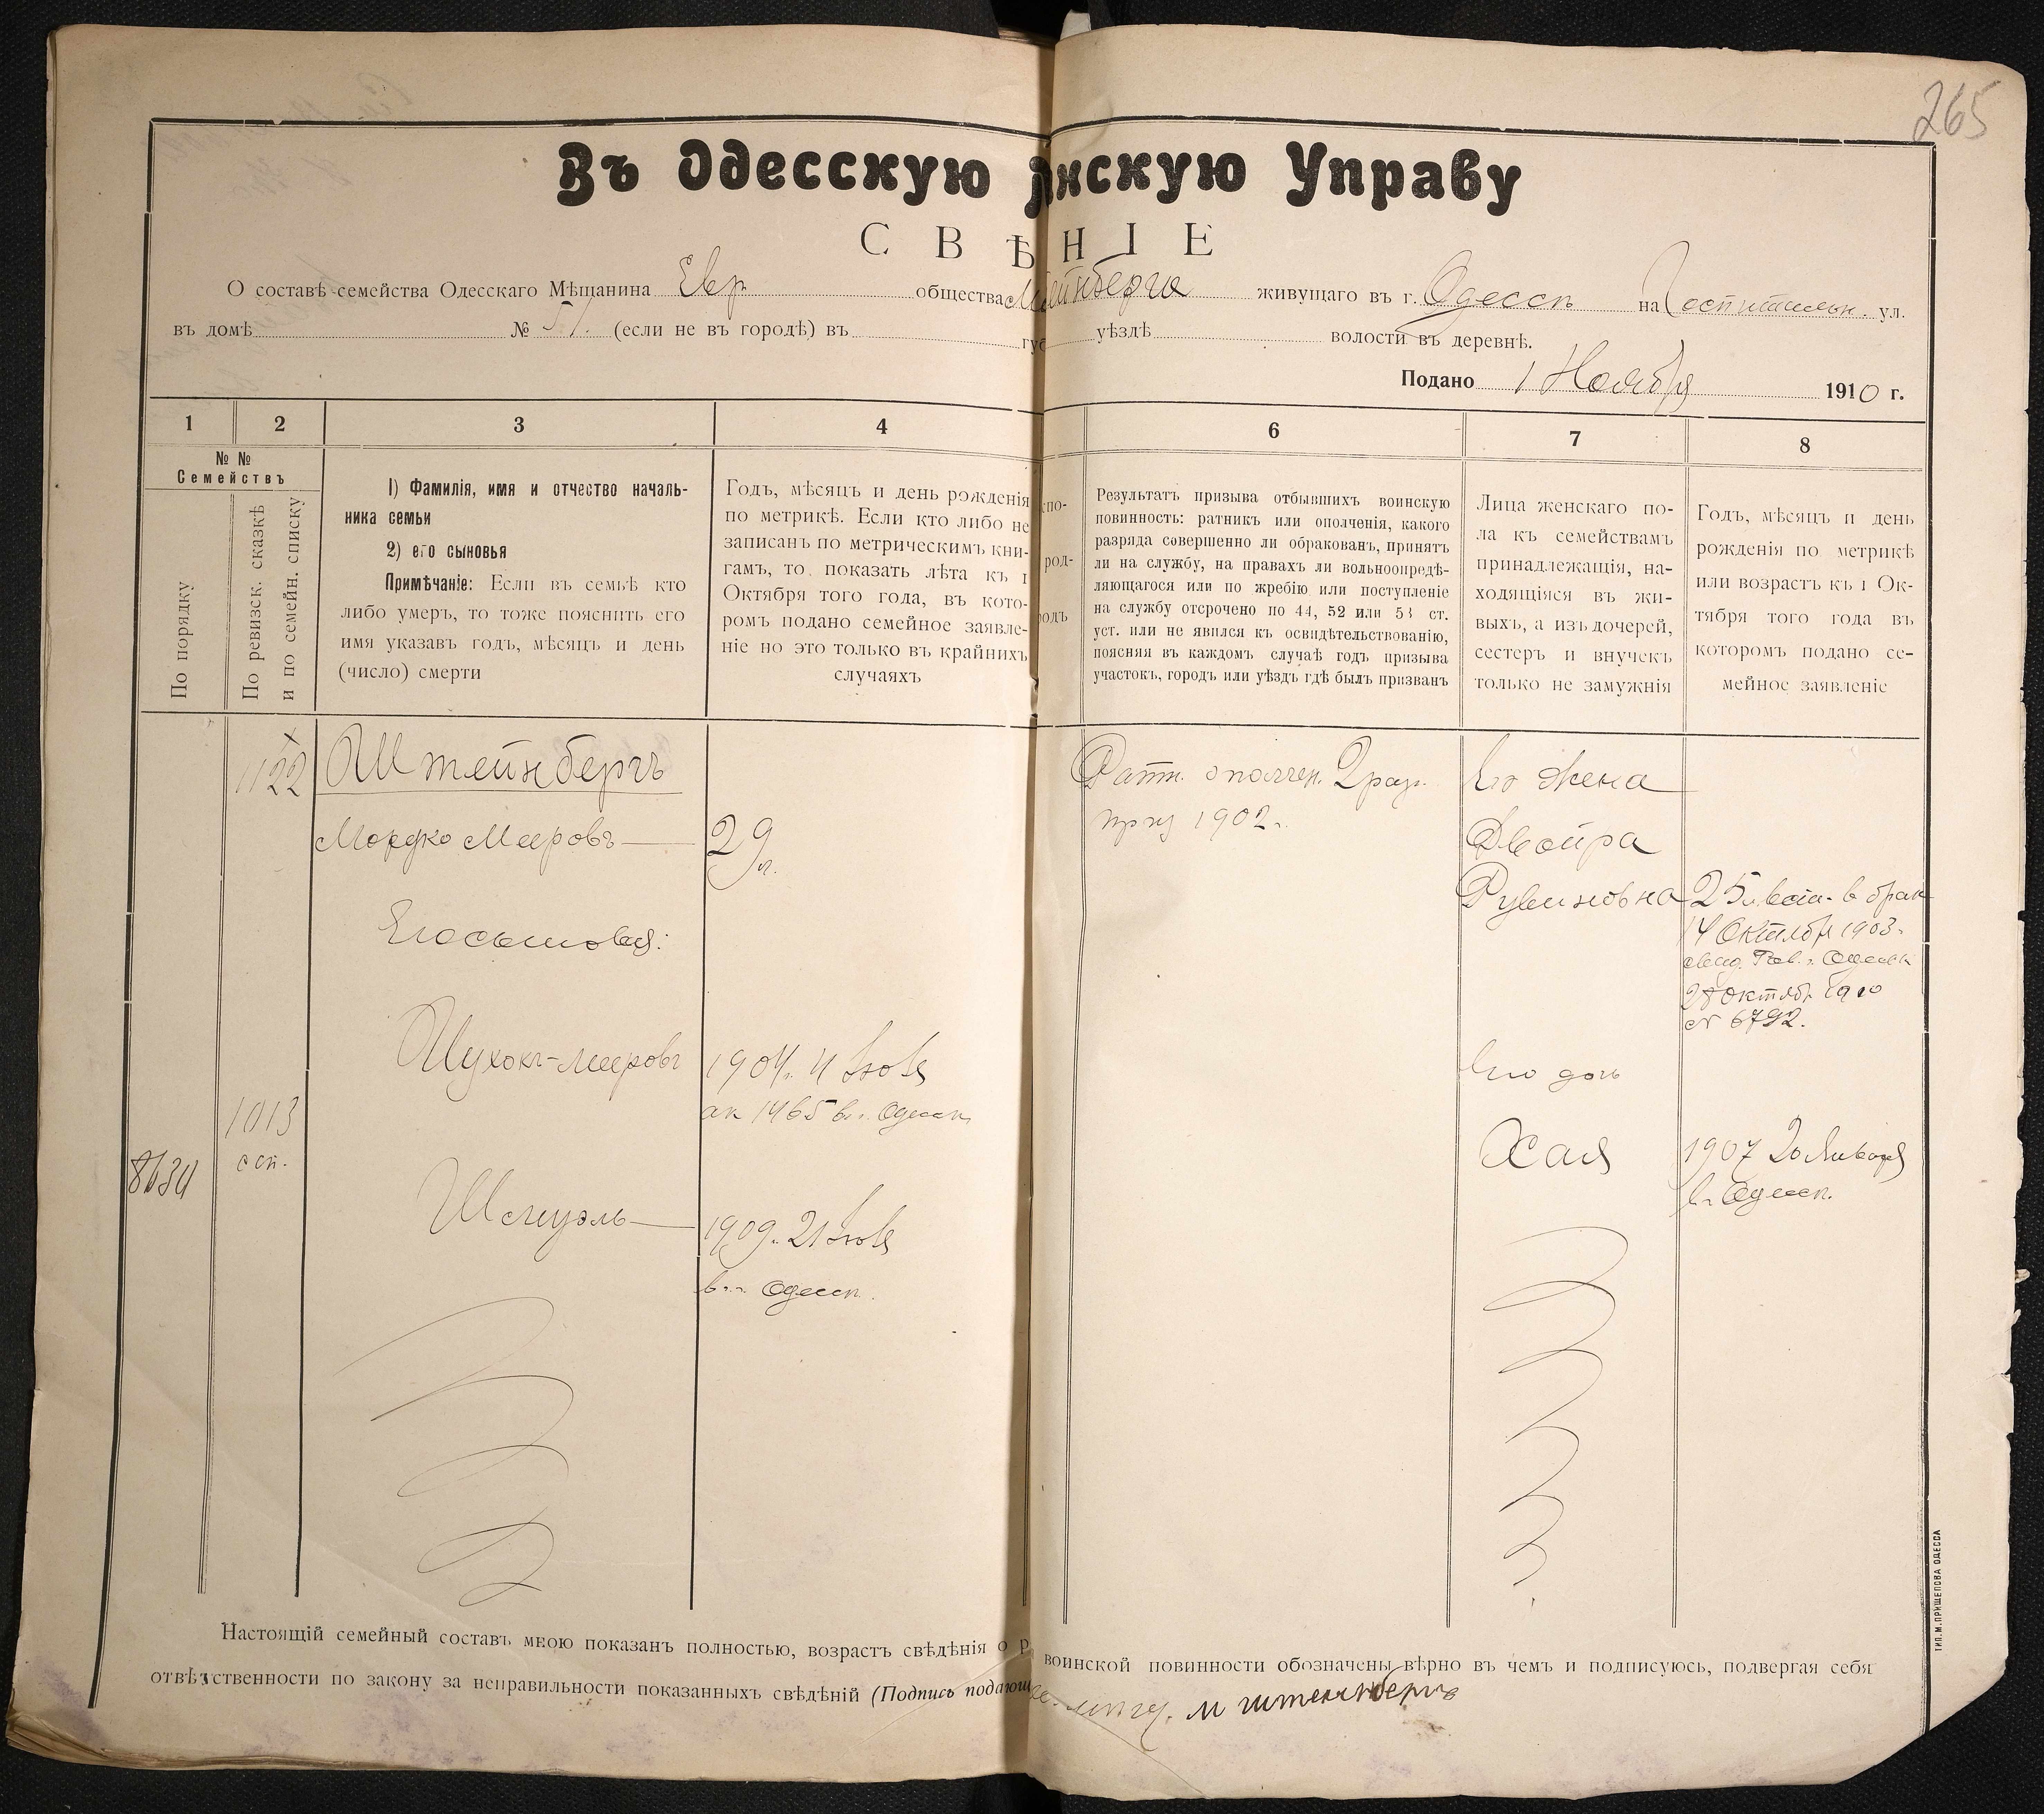 265
Въ Одесскую нскую Управу
СВѢНІЕ
О составѣ семейства Одесскаго Мѣщанина Евр общества живущаго въ г. Одессѣ на Госпитальн. ул.
въ домѣ № 51. (если не въ городѣ) въ губ уѣздѣ волости въ деревнѣ.
Подано 1 Ноября 1910 г.
1 2 3 4 6 7 8
№ №
Семействъ
По порядку
По ревизск. сказкѣ
и по семейн. списку
1) Фамилія, имя и отчество началь-
ника семьи
2) его сыновья
Примѣчаніе: Если въ семьѣ кто
либо умеръ, то тоже пояснить его
имя указавъ годъ, мѣсяцъ и день
(число) смерти
Годъ, мѣсяцъ и день рожденія
по метрикѣ. Если кто либо не
записанъ по метрическимъ кни-
гамъ, то показать лѣта къ 1
Октября того года, въ кото-
ромъ подано семейное заявле-
ніе но это только въ крайнихъ
случаяхъ
спо-
род-
родъ
Результатъ призыва отбывшихъ воинскую
повинность: ратникъ или ополченія, какого
разряда совершенно ли обракованъ, принятъ
ли на службу, на правахъ ли вольноопредѣ-
ляющагося или по жребію или поступленіе
на службу отсрочено по 44, 52 или 53 ст.
уст. или не явился къ освидѣтельствованію,
поясняя въ каждомъ случаѣ годъ призыва
участокъ, городъ или уѣздъ гдѣ былъ призванъ
Лица женскаго по-
ла къ семействамъ
принадлежащія, на-
ходящіяся въ жи-
выхъ, а изъ дочерей,
сестеръ и внучекъ
только не замужнія
Годъ, мѣсяцъ и день
рожденія по метрикѣ
или возрастъ къ 1 Ок-
тября того года въ
которомъ подано се-
мейное заявленіе
1122
Штейнбергъ
Мордко Мееровъ
29 л.
Ратн. ополчен. 2 разр.
приз 1902 г.
Его жена
Двойра
Рувиновна
25 л. вст. в брак
14 Октября 1903 г.
свид. Рав. г. Одессы
28 октября 1910
№ 6792.
Его сыновья:
Шухокъ-мееровъ
1904 г. 4 Іюля
ак 1465 в г. Одессѣ
Его дочь
Хая
1907 20 Января
в г. Одессѣ.
1013
8634
Шмуэль
1909 г. 21 Іюля
в г. Одессѣ.
Настоящій семейный составъ мною показанъ полностью, возрастъ свѣдѣнія о воинской повинности обозначены вѣрно въ чемъ и подписуюсь, подвергая себя
отвѣтственности по закону за неправильности показанныхъ свѣдѣній (Подпись подающ
м штейнбергъ
ТИП. М. ПРИЩЕПОВА ОДЕССА